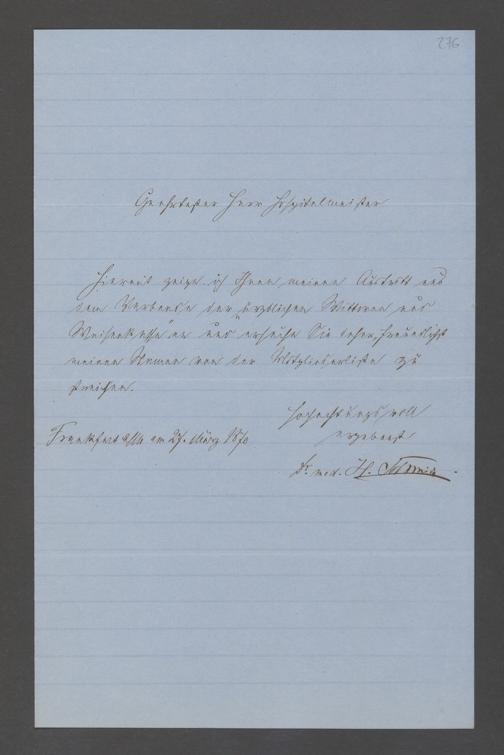 276
Geehrtester Herr Hospitalmeister
Hiermit zeige ich Ihnen meinen Austritt aus
dem Verbande der "ärztlichen Wittwen und
Waisenkasse" an und ersuche Sie daher, freundlichst
meinen Namen von der Mitgliederliste zu
streichen.
Hochachtungsvoll
ergebenst
Frankfurt a/M am 27. März 1870
Dr. med. H.